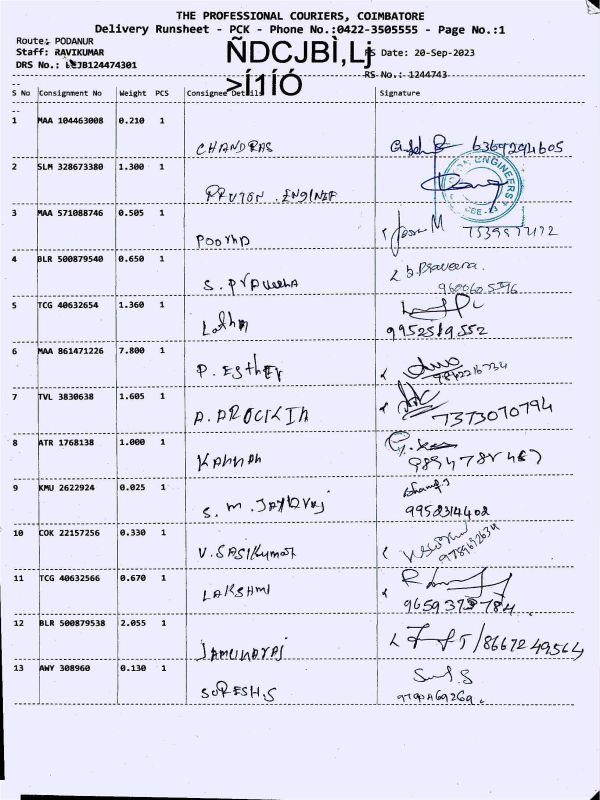 THE PROFESSIONAL COURIERS, COIMBATORE
Delivery Runsheet - PCK - Phone No.:0422-3505555 - Page No.:1
Route: PODANUR
Staff: RAVIKUMAR
RS Date: 20-Sep-2023
DRS No.: CJB124474301
ÑDCJBÌ,Lj
>Í1ÍÓ
RS No.: 1244743
S No Consignment No Weight PCS Consignee Details Signature
1 MAA 104463008 0.210 1
CHANDRAS 6369294605
2 SLM 328673380 1.300 1
PRUTON .ENGINEE
3 MAA 571088746 0.505 1
POORNA
4 BLR 500879540 0.650 1
S. PRAVEENA S.Praveena.
9600605596
5 TCG 40632654 1.360 1
Latha 9952519552
6 MAA 861471226 7.800 1
P. ESTHER 9842216734
7 TVL 3830638 1.605 1
7373070794
8 ATR 1768138 1.000 1
KANNAN 9894782467
9 KMU 2622924 0.025 1
S. M. JAYARAJ 9952314402
10 COK 22157256 0.330 1
V. SASIKUMAR 9789692634
11 TCG 40632566 0.670 1
LAKSHMI 9659373784
12 BLR 500879538 2.055 1
JAMUNARAJ /8667249564
13 AWY 308960 0.130 1
SURESH.S